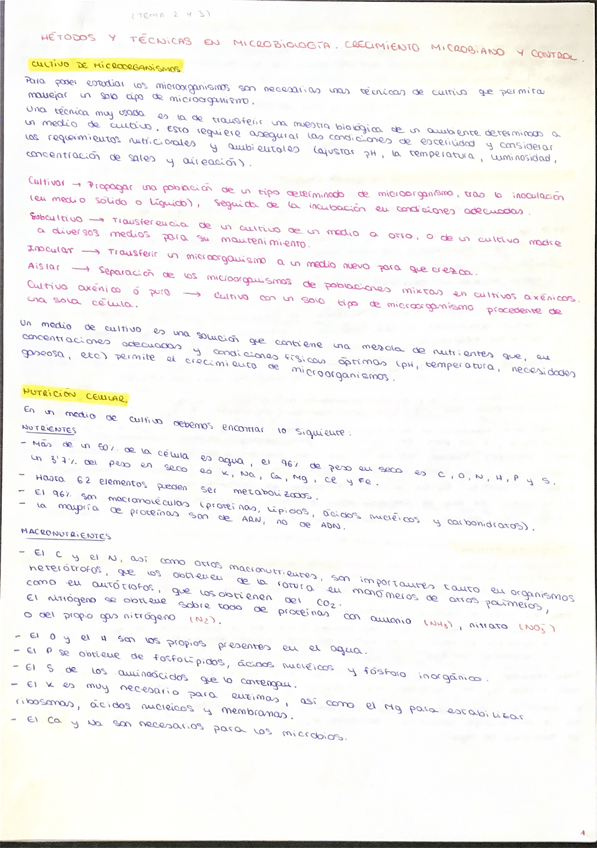 (TEMA 2 Y 3)
MÉTODOS Y TÉCNICAS EN MICROBIOLOGÍA. CRECIMIENTO MICROBIANO Y CONTROL.
CULTIVO DE MICROORGANISMOS
Para poder estudiar los microorganismos son necesarias unas técnicas de cultivo que permita
manejar un solo tipo de microorganismo.
Una técnica muy usada es la de transferir una muestra biológica de un ambiente determinado a
un medio de cultivo. Esto requiere asegurar las condiciones de esterilidad y considerar
los requerimientos nutricionales y ambientales (ajustar pH, la temperatura, luminosidad,
concentración de sales y aireación).
Cultivar → Propagar una población de un tipo determinado de microorganismo, tras la inoculación
(en medio sólido o líquido), seguida de la incubación en condiciones adecuadas.
Subcultivo → Transferencia de un cultivo de un medio a otro, o de un cultivo madre
a diversos medios para su mantenimiento.
Inocular → Transferir un microorganismo a un medio nuevo para que crezca.
Aislar → Separación de los microorganismos de poblaciones mixtas en cultivos axénicos.
Cultivo axénico ó puro → Cultivo con un solo tipo de microorganismo procedente de
una sola célula.
Un medio de cultivo es una solución que contiene una mezcla de nutrientes que, en
concentraciones adecuadas y condiciones físicas óptimas (pH, temperatura, necesidades
gaseosa, etc) permite el crecimiento de microorganismos.
NUTRICIÓN CELULAR
En un medio de cultivo debemos encontrar lo siguiente:
NUTRIENTES
- Más de un 50% de la célula es agua, el 96% de peso en seco es C, O, N, H, P y S.
Un 3'7% del peso en seco es K, Na, Ca, Mg, Cl y Fe.
- Hasta 62 elementos pueden ser metabolizados.
- El 96% son macromoléculas (proteínas, lípidos, ácidos nucléicos y carbohidratos).
- La mayoría de proteínas son de ARN, no de ADN.
MACRONUTRIENTES
- El C y el N, así como otros macronutrientes, son importantes tanto en organismos
heterótrofos, que los obtienen de la rotura en monómeros de otros polímeros,
como en autótrofos, que los obtienen del CO2.
El nitrógeno se obtiene sobre todo de proteínas con amonio (NH3), nitrato (NO3-)
o del propio gas nitrógeno (N2).
- El O y el H son los propios presentes en el agua.
- El P se obtiene de fosfolípidos, ácidos nucléicos y fósforo inorgánico.
- El S de los aminoácidos que lo contengan.
- El K es muy necesario para enzimas, así como el Mg para estabilizar
ribosomas, ácidos nucleicos y membranas.
- El Ca y Na son necesarios para los microbios.
4